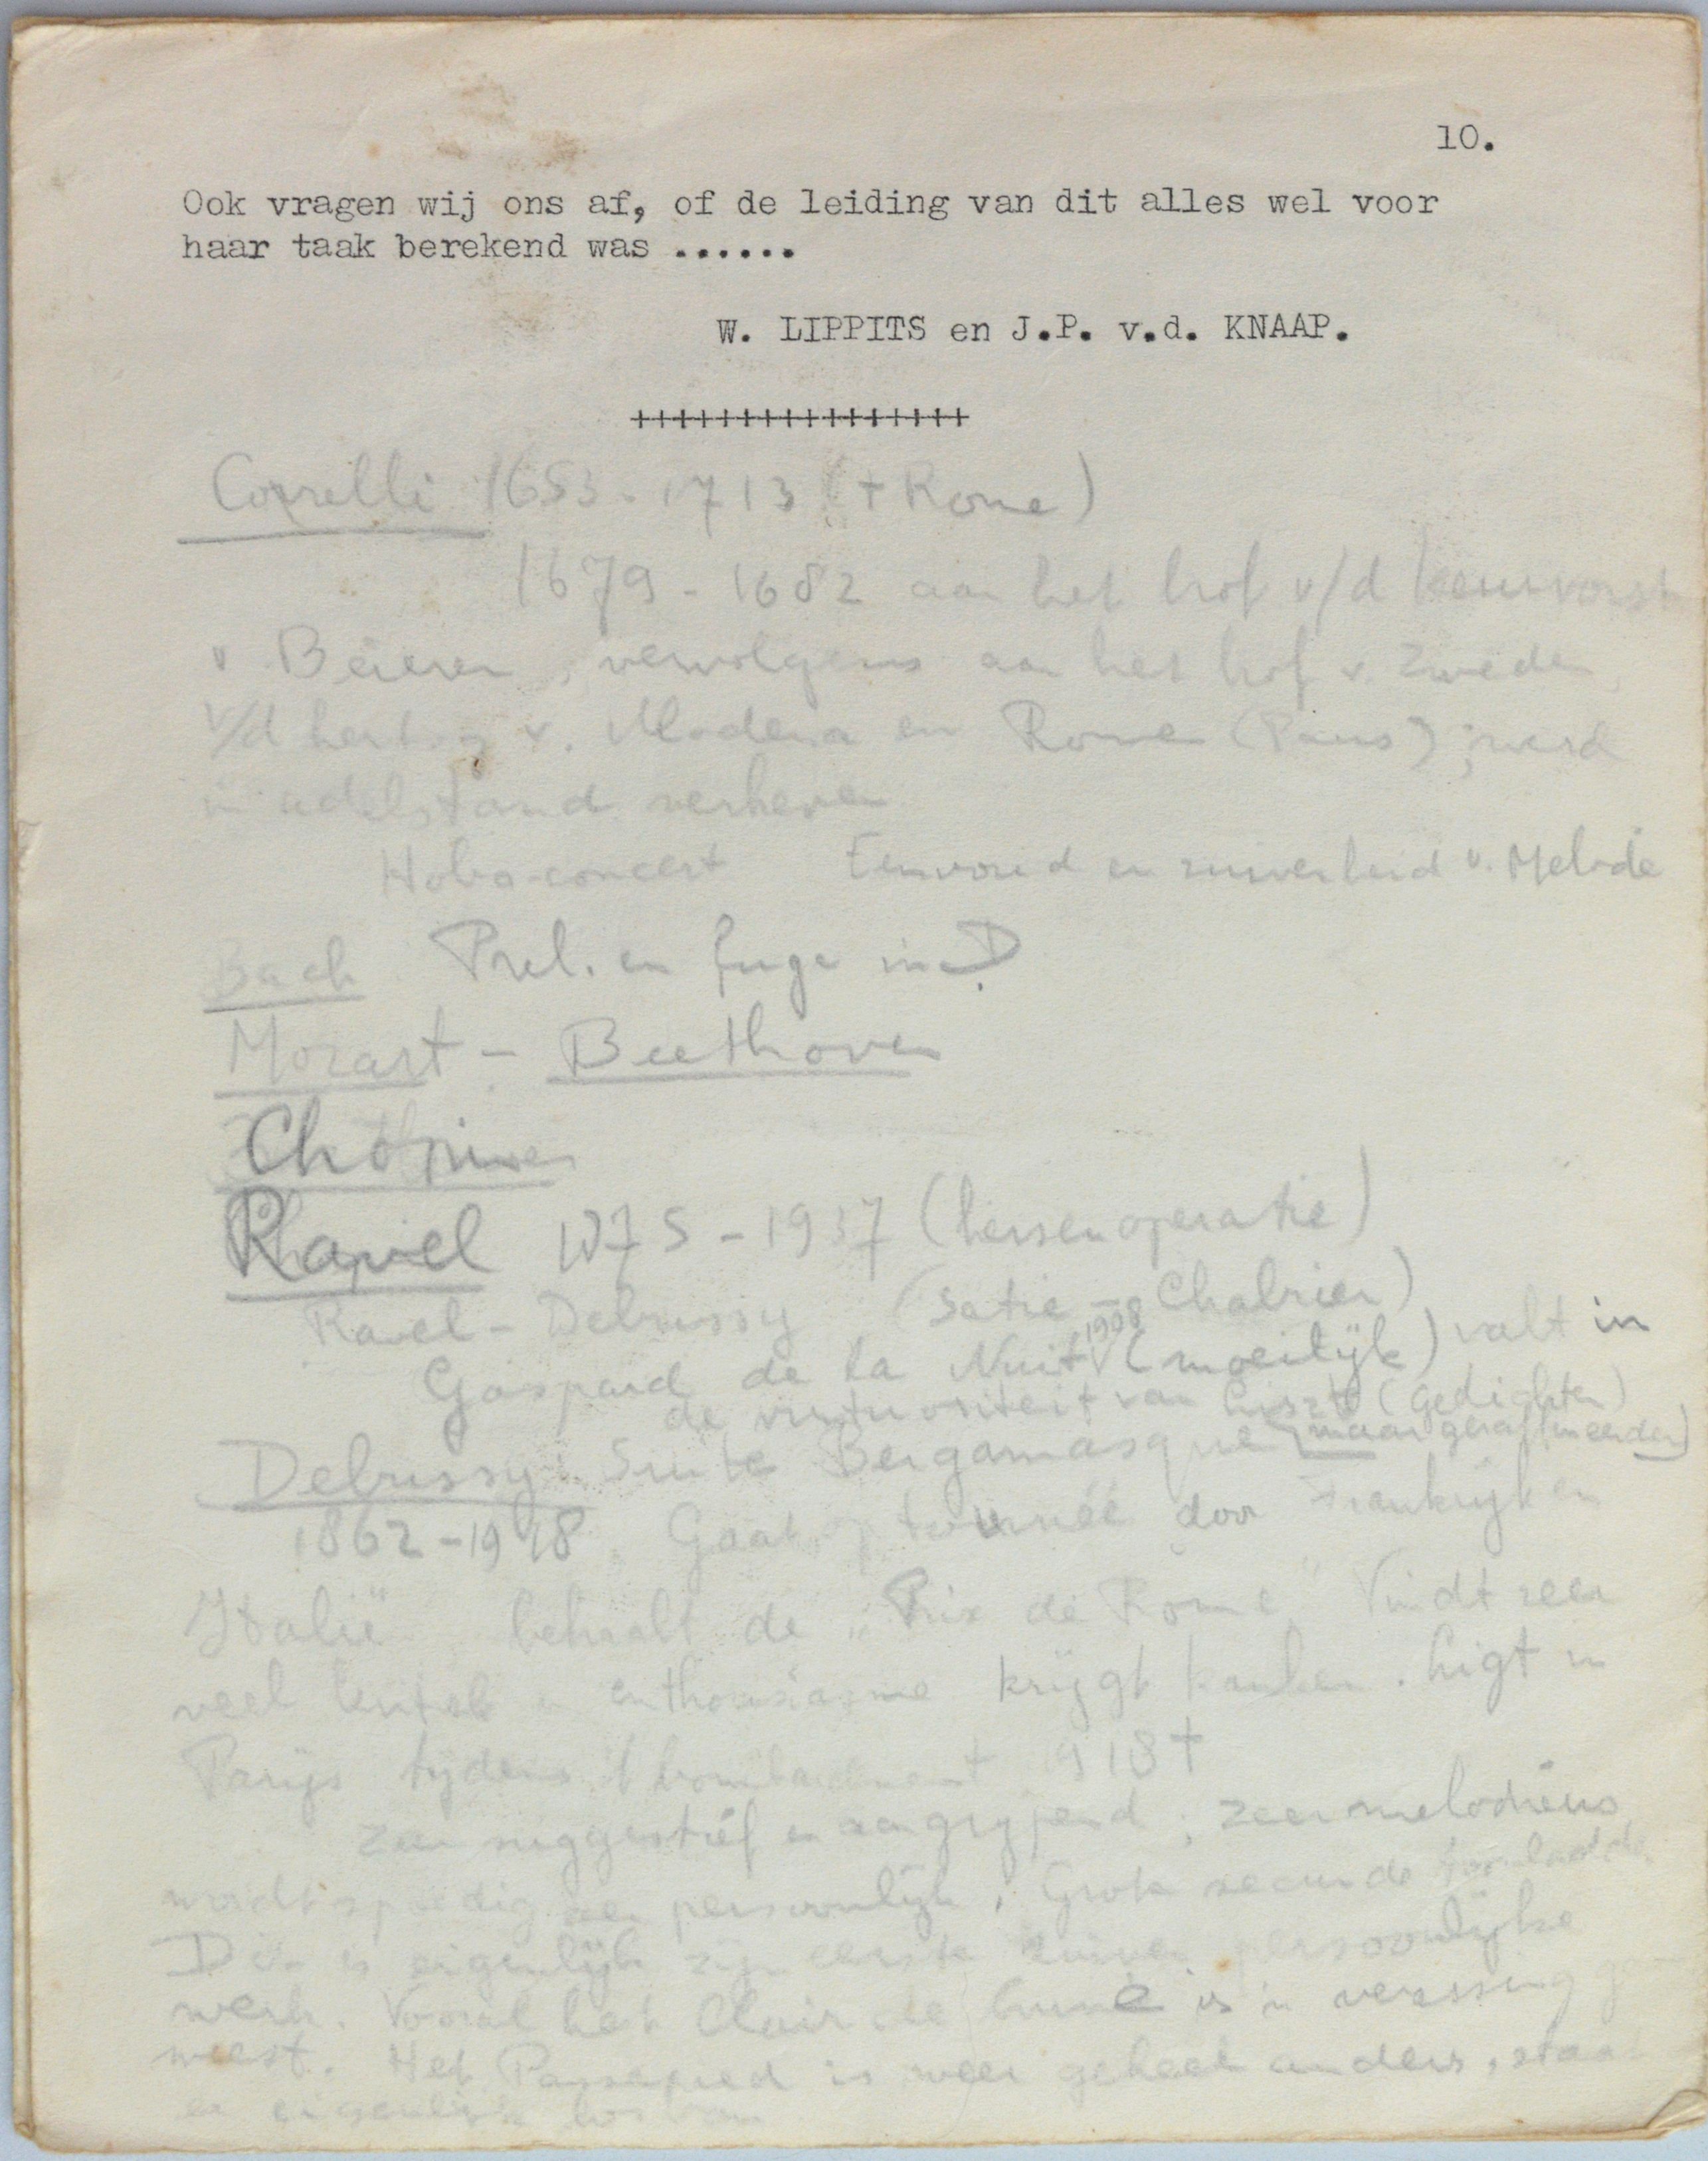 10.
Ook vragen wij ons af, of de leiding van dit alles wel voor
haar taak berekend was ......
W. LIPPITS en J.P. v.d. KNAAP.
++++++++++++++++
Correlli 1653 - 1713 († Rome)
1679 - 1682 aan het hof v/d keurvorst
v Beieren, vervolgens aan het hof v. Zweden,
v/d hertog v. Modena en Rome (Paus); werd
in adelstand verheven
Hobo-concert Eenvoud en zuiverheid v. Melodie
Bach Prel. en fuga in D.
Mozart - Beethoven
Chopin
Ravel 1875 - 1937 (hersenoperatie)
Ravel - Debussy (Satie - Chabrier)
Gaspard de la Nuit 1908 (moeilijk) valt in
de virtuositeit van Liszt (gedichten)
(maar geraffineerder)
Debussy Suite Bergamasque
1862 - 1918. Gaat op tournée door Frankrijk en
Italië behaalt de "Prix de Rome" Vindt zeer
veel kritiek en enthousiasme krijgt kanker. Ligt in
Parijs tijdens 't bombardement 1918 †
zeer suggestief en aangrijpend; zeer melodieus
wordt spoedig zeer persoonlijk. Grote secunde
Dit is eigenlijk zijn eerste zuiver persoonlijke
werk. Vooral het Clair de lune is 'n verassing ge
weest. Het Passepied is weer geheel anders, staat
er eigenlijk los van